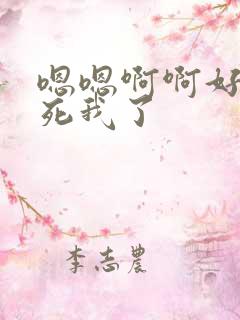 嗯嗯啊啊好
死我了
李志农